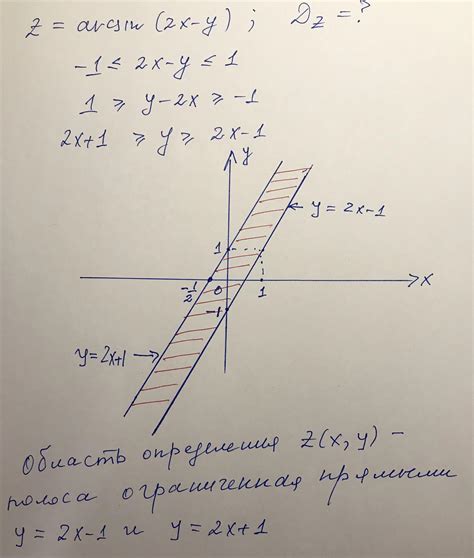 z = arcsin (2x-y) ; D_z = ?
-1 ≤ 2x-y ≤ 1
1 ⩾ y-2x ⩾ -1
2x+1 ⩾ y ⩾ 2x-1
y
y = 2x-1
1
-1/2 0 1 x
-1
y = 2x+1
Область определения z(x, y) -
полоса ограниченная прямыми
y = 2x-1 и y = 2x+1